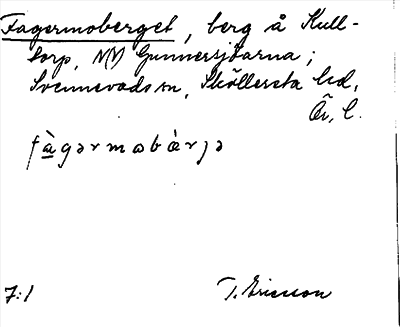 Fagermoberget, berg å Kull-
torp, NV Gunnersjöarna;
Svennevads sn, Sköllersta hd,
Ör. l.
fàgərmobæ̀rjə
7:1 T. Ericsson